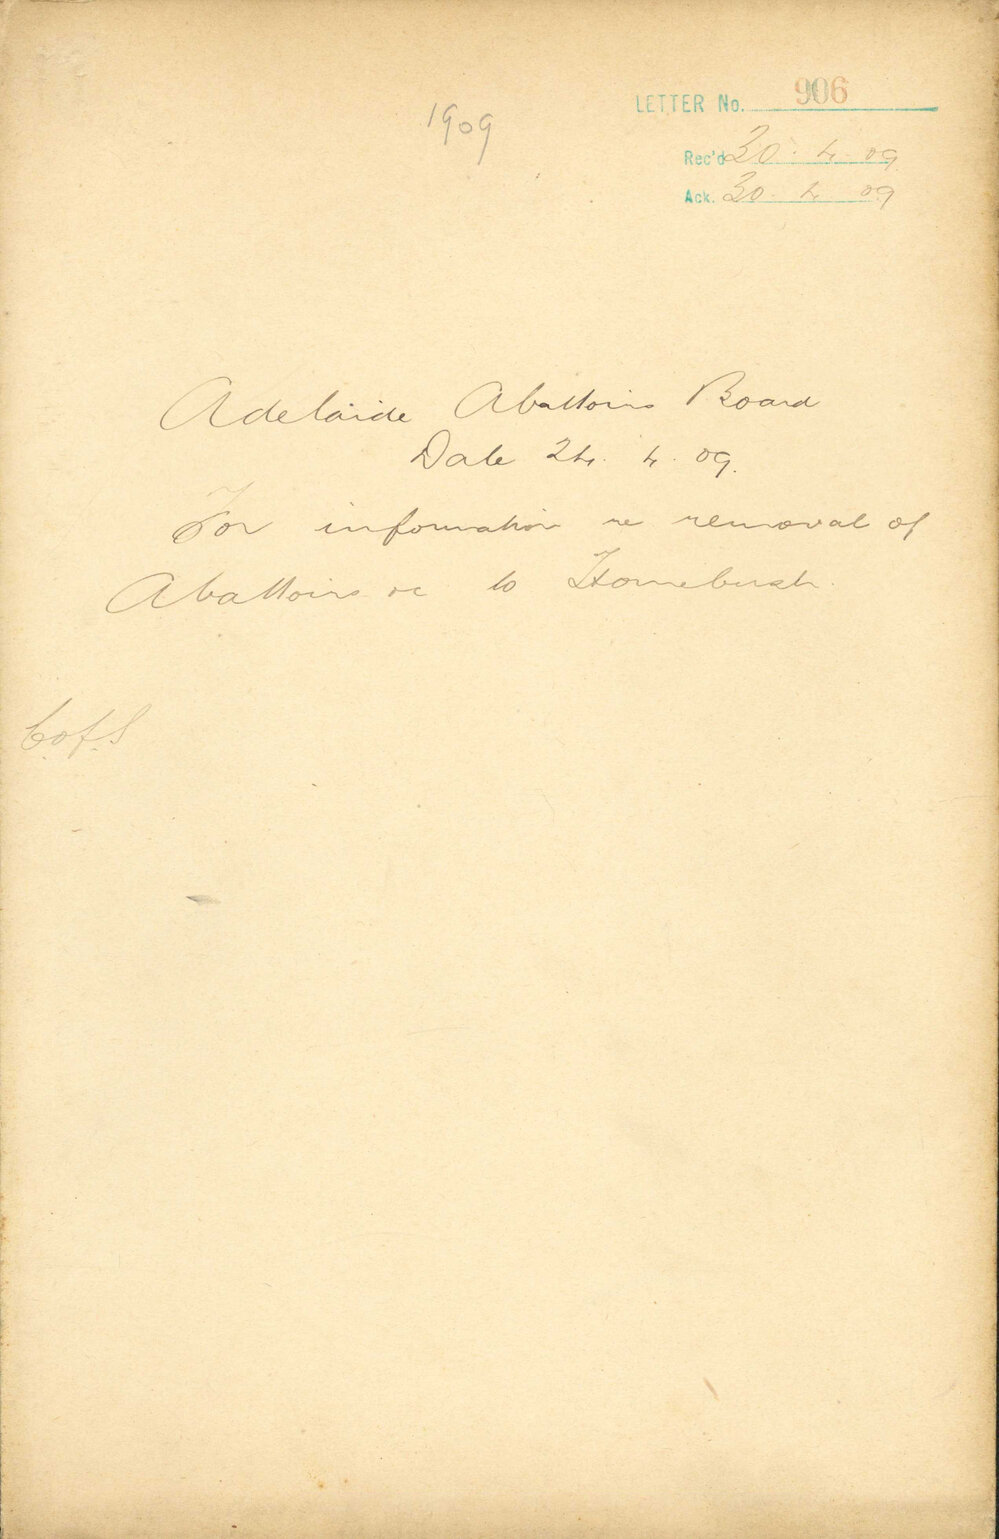 1909
LETTER No. 906
Rec'd 30. 4. 09
Ack. 30. 4. 09
Adelaide Abattoirs Board
Date 24. 4. 09.
For information re removal of
Abattoirs &c to Homebush.
C.of.S